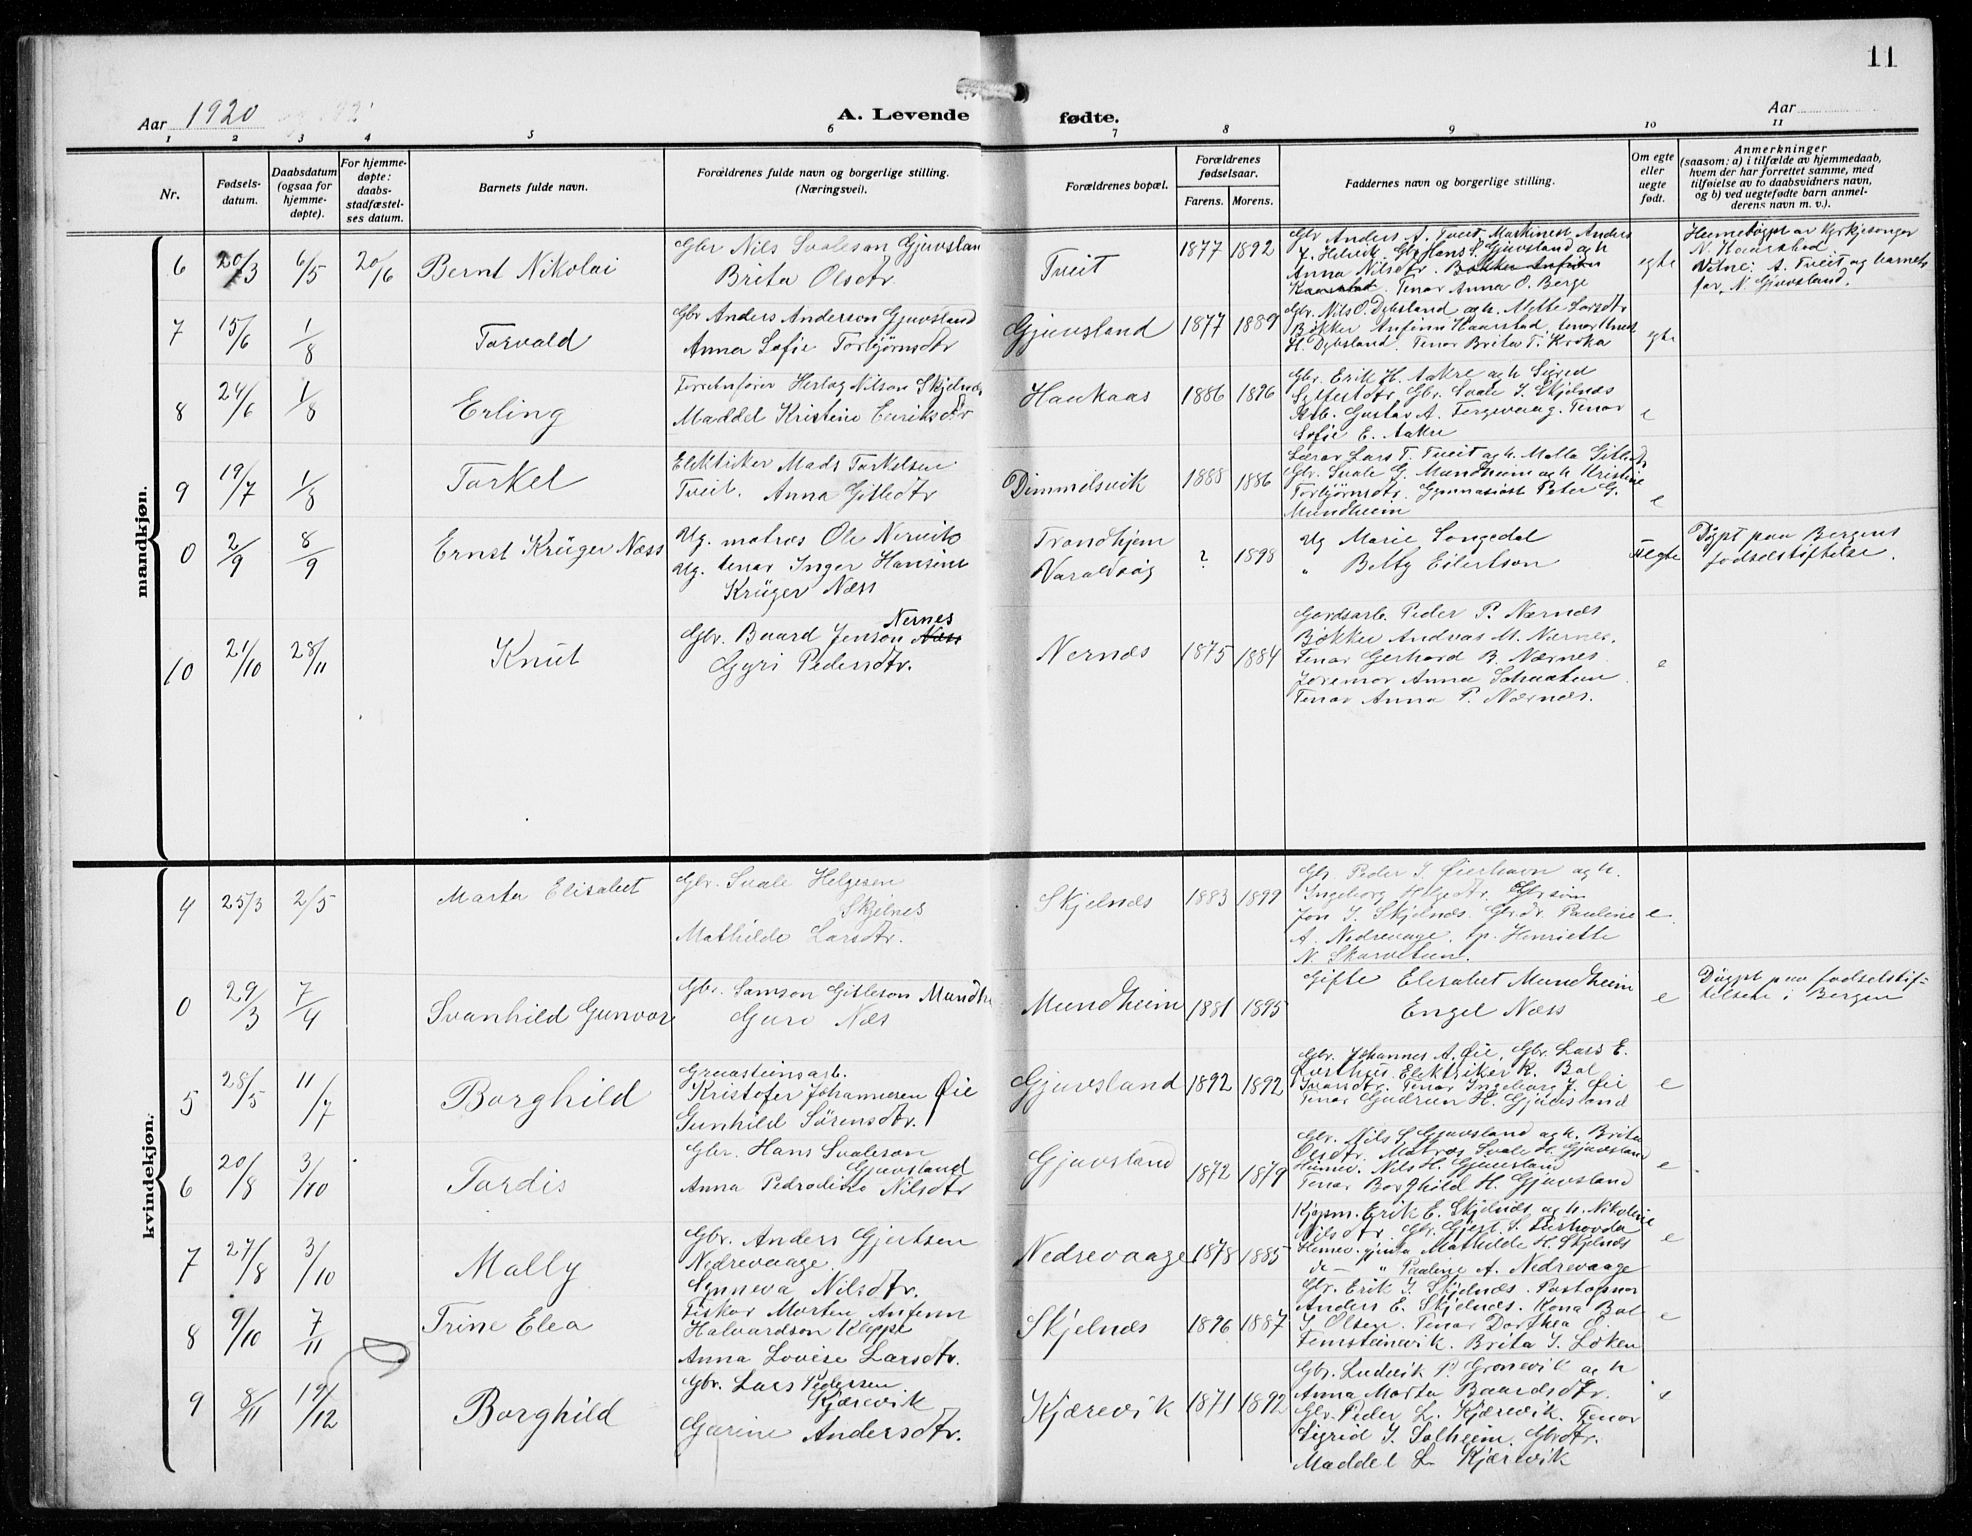 11
Aar 1920
A. Levende fødte.
Aar
1 2 3 4 5 6 7 8 9 10 11
Nr.
Fødsels-
datum.
Daabsdatum
(ogsaa for
hjemme-
døpte).
For hjemme-
døpte:
daabs-
stadfæstel-
ses datum.
Barnets fulde navn.
Forældrenes fulde navn og borgerlige stilling.
(Næringsvei).
Forældrenes bopæl.
Forældrenes
fødselsaar.
Farens. Morens.
Faddernes navn og borgerlige stilling.
Om egte
eller
uegte
født.
Anmerkninger
(saasom: a) i tilfælde av hjemmedaab,
hvem der har forrettet samme, med
tilføielse av to daabsvidners navn,
og b) ved uegtefødte barn anmel-
derens navn m. v.).
mandkjøn.
6 20/3 6/5 20/6 Bernt Nikolai
Gbr Nils Svaleson Gjuvsland
Brita Olsdtr.
Tveit 1877 1892
Gbr Anders A. Tveit Maskinest Anders
Gbr Hans S. Gjuvsland og h
Anna Nilsdtr.
Tenar Anna O. Berge
egte
Heimedøypt av Kyrkjesongar
N. Haarstad
Vitne: A. Tveit og barnets
far, N Gjuvsland.
7 15/6 1/8 Torvald
Gbr Anders Anderson Gjuvsland
Anna Sofie Torbjørnsdtr
Gjuvsland 1877 1889
Gbr. Nils O. Dybsland og h. Mette Larsdtr
Bøkker Anfinn Haarstad, tenar
H. Dybsland. Tenar Brita T. Kroka
egte
8 24/6 1/8 Erling
Forretnfører Herlog Nilson Skjelnes
Maddel Kristine Eriksdtr
Haukaas 1886 1896
Gbr. Erik H. Aakre og h Sigrid
Gbr. Svale I. Skjelnæs
Gustav A. Tergevaag. Tenar
Sofie E. Aakre
e
9 19/7 1/8 Torkel
Elektiker Mads Torkelsen
Tveit. Anna Gitledtr
Dimmelsvik 1888 1886
Lærar Lars T. Tveit og h. Malla
Gbr. Svale G. Mundheim og h Kristine
Torbjørnsdtr. Gymnasiast Peter G.
Mundheim
e
0 2/9 8/9 Ernst Krüger Næss
Ug. matros Ole Nervik
Ug. tenar Inger Hansine
Krüger Næss
Trondhjem
Varaldsøy
? 1898
Ug Marie Songedal
" Betty Eilertson
Uegte
Døypt paa Bergens
fødselstiftelse.
10 21/10 28/11 Knut
Nernes
Gbr. Baard Jenson Næss
Gyri Pedersdtr.
Nernæs 1875 1884
Gardsarb. Peder P. Nærnæs
Bøkker Andreas M. Nærnes.
Tenar Gerhard B. Nærnes
Jordmor Anna
Tenar Anna P. Nærnæs.
e
kvindekjøn.
4 25/3 2/5 Marta Elisabet
Gbr. Svale Helgesen
Skjelnes
Mathilde Larsdtr.
Skjelnæs 1883 1899
Gbr. Peder I. Øierhavn og h.
Ingeborg Helgedtr, Gbrsøn
Jon I. Skjelnæs. Gbrdr. Pauline
A. Nedrevaage. tp. Henriette
e
0 29/3 7/4 Svanhild Gunvor
Gbr. Samson Gitleson Mundhe
Guro Næs
Mundheim 1881 1895
Gifte Elisabet Mundheim
Engel Næss
e
Døypt paa fødselstif-
telsete i Bergen
5 28/5 11/7 Borghild
Kristofer Johannesen Øie
Gunhild Sørensdtr.
Gjuvsland 1892 1892
Gbr. Johannes A. Øie, Gbr. Lars E.
Elektriker K. Bal
Ivarsdtr. Tenar Ingeborg J. Øie
Tenar Gudrun H. Gjuvsland
e
6 20/8 3/10 Tordis
Gbr. Hans Svaleson
Gjuvsland
Anna Pedrodine Nilsdtr
Gjuvsland 1872 1879
Gbr. Nils S Gjuvsland og h. Brita
Olsdtr. Matros Svale H. Gjuvsland
Heimev. Nils H. Gjuvsland
Tenar Borghild H. Gjuvsland
e
7 27/8 3/10 Mally
Gbr. Anders Gjertsen
Nedrevaage.
Synneva Nilsdtr.
Nedrevaage 1878 1885
Kjøpm. Erik E. Skjelnæs og h. Nikoline
Nilsdtr. Gbr. Gjert S.
Heimev. gjenta Mathilde H. Skjelnæs
do — " Pauline A. Nedrevaage
e
8 9/10 7/11 Trine Elea
Fiskar Morten Anfinn
Halvardson Kleppe
Anna Lovise Larsdtr.
Skjelnæs 1896 1887
Gbr. Erik I. Skjelnæs. Postopnar
Anders E. Skjelnæs. Kona Bal
I. Olsen. Tenar Dorthea O.
Femsteinevik. Brita I. Løken
e
9 8/11 19/12 Borghild
Gbr. Lars Pedersen
Kjærevik
Gurine Andersdtr.
Kjærevik 1871 1892
Gbr. Ludvik P. Gronevik og h
Anna Marta Baardsdtr.
Gbr. Peder L. Kjærevik. Tenar
Sigrid I. Solheim. Gbrdtr.
Maddel L. Kjærevik
e